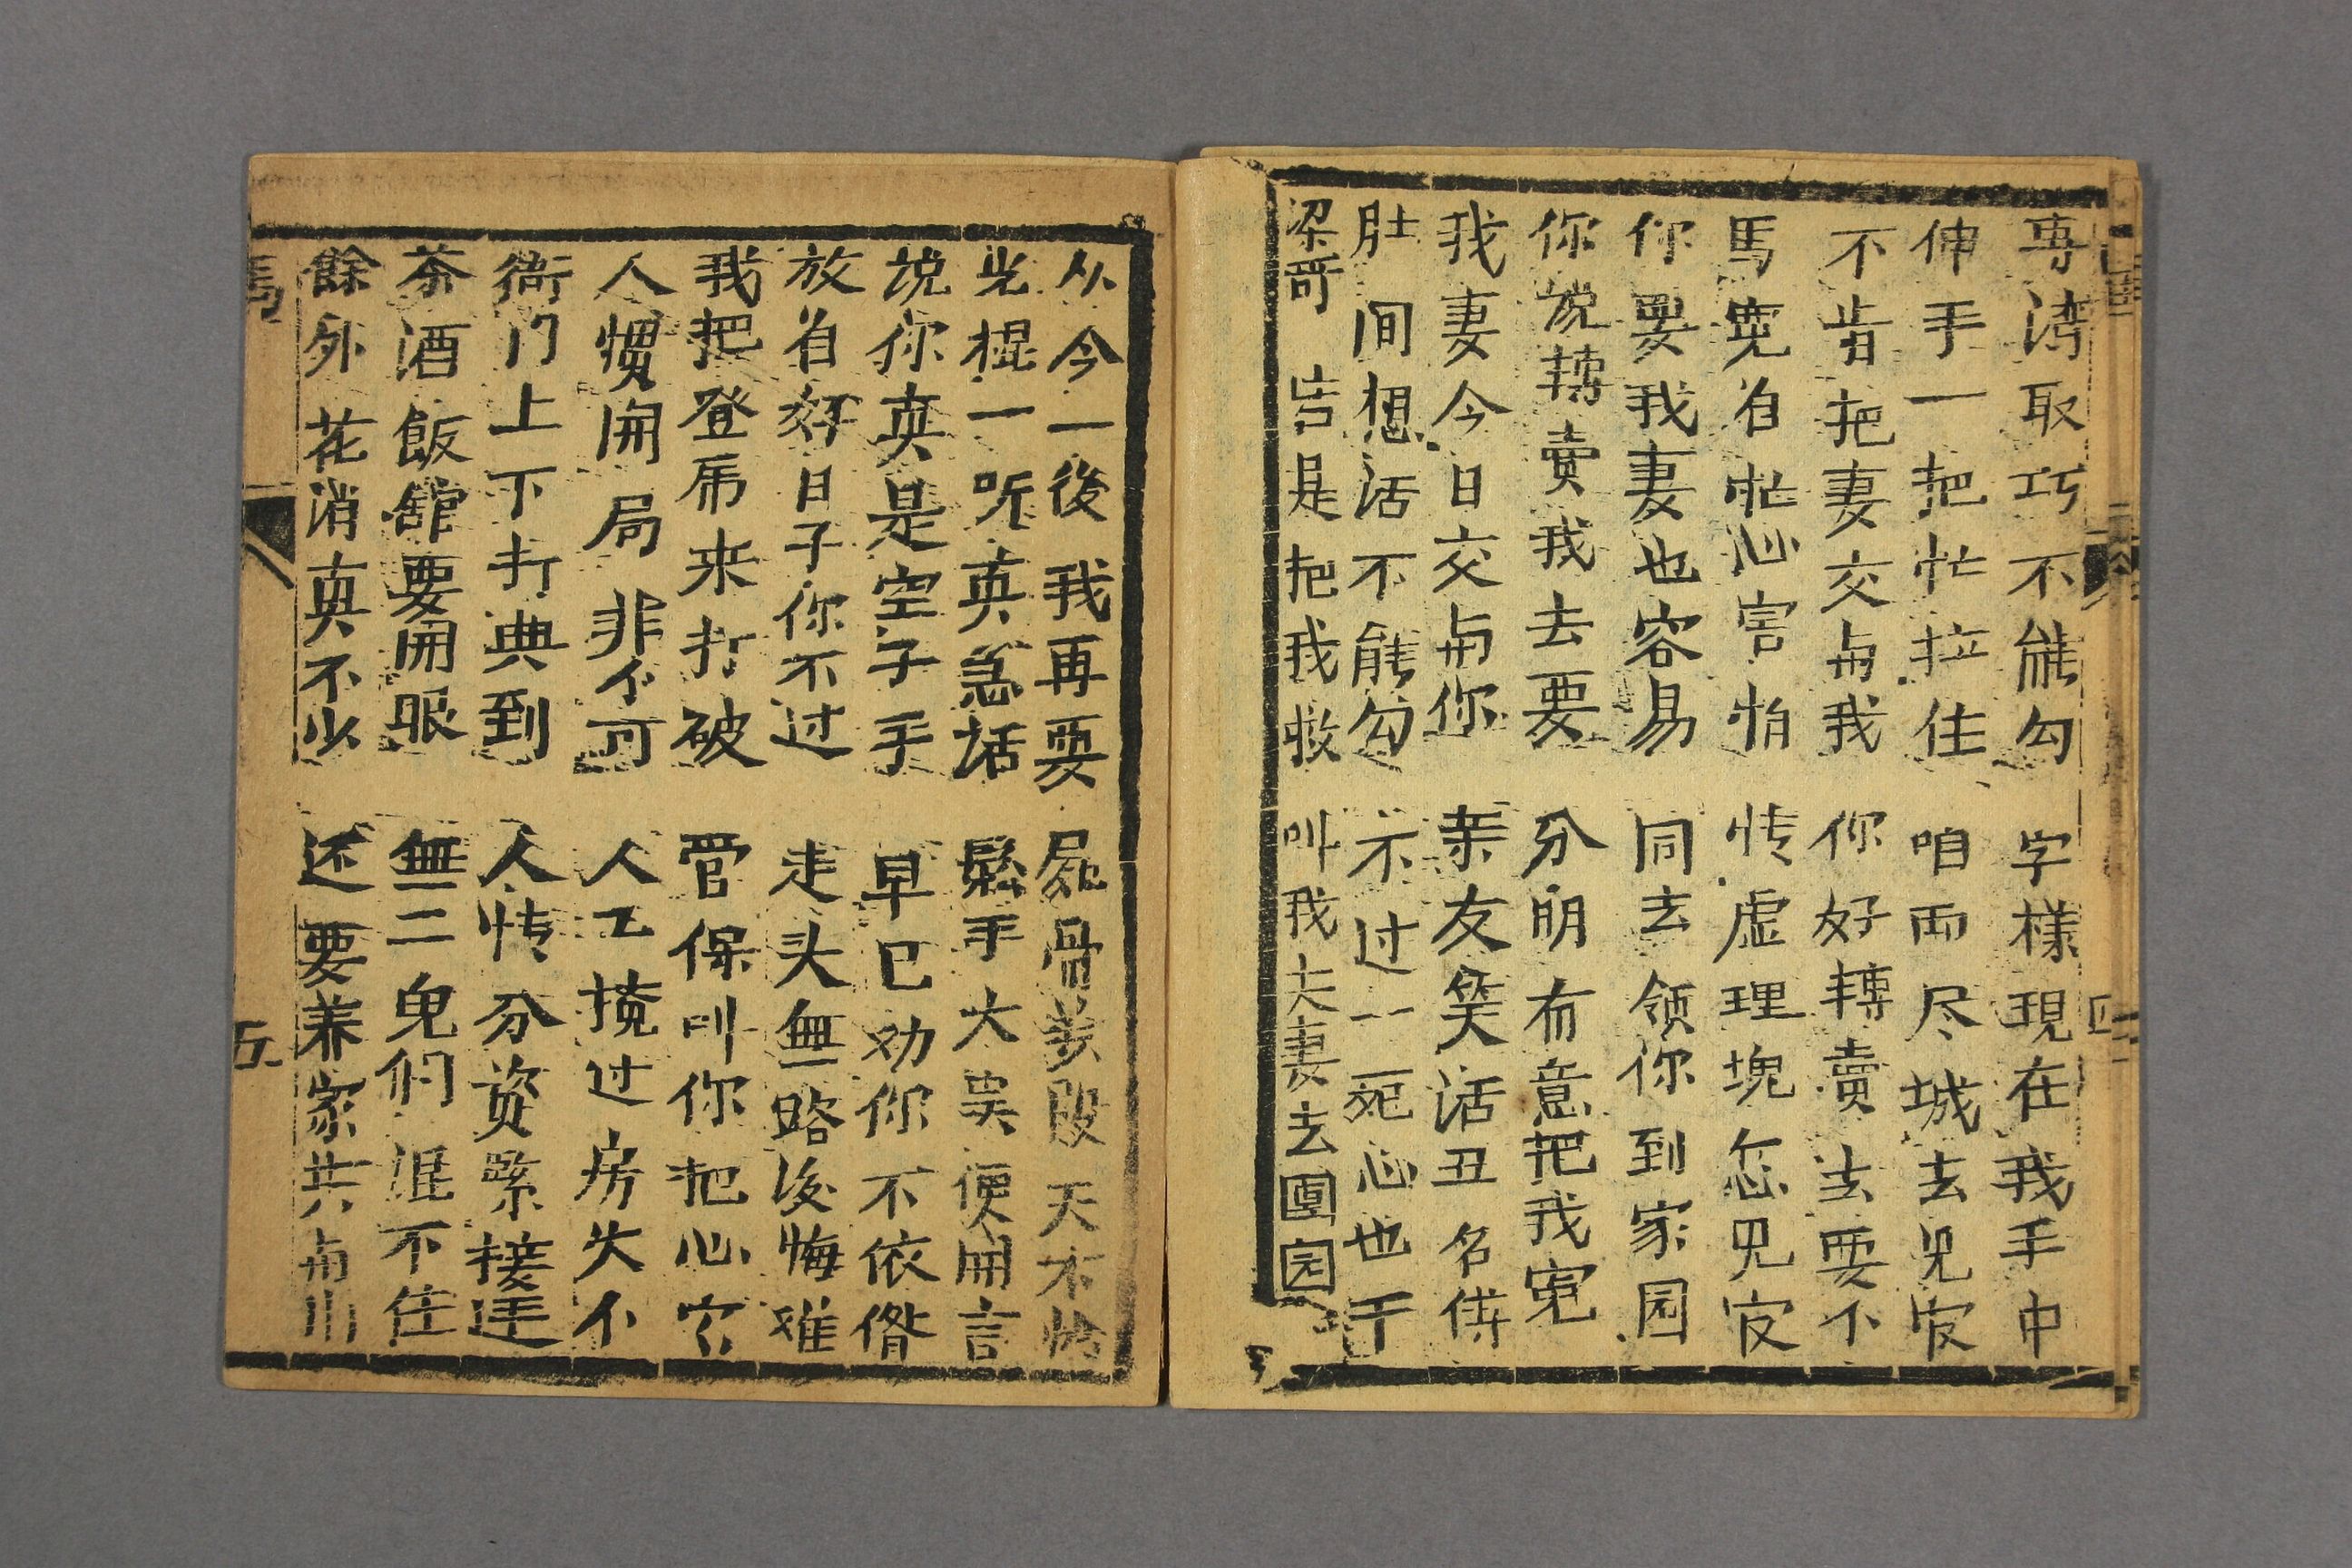 専湾取巧不能勾 字様現在我手中
伸手一把忙拉住 咱両尽城去見官
不肯把妻交与我 你好轉賣去要不
馬寛自忙心害怕 怯虚理塊怎見官
你要我妻也容易 同去领你到家园
你说轉賣我去要 分明有意把我寃
我妻今日交与你 亲友笑话丑名傳
肚间想活不能勾 不过一死心也干
梁哥 告是把我救 叫我夫妻去團园
从今一後我再要 屍骨 段天不
光棍一听真急話 鬆手大 便開言
说你真是空子手 早已劝你不依
放自好日子你不过 走头無路後悔难
我把登帋来打破 管保叫你把心
人慣開局非不可 人工 过房大不
衙门上下打典到 人 分資緊接連
茶酒飯舘要開眼 無二鬼们 不住
餘外花消真不少 还要养家共
馬
五
四